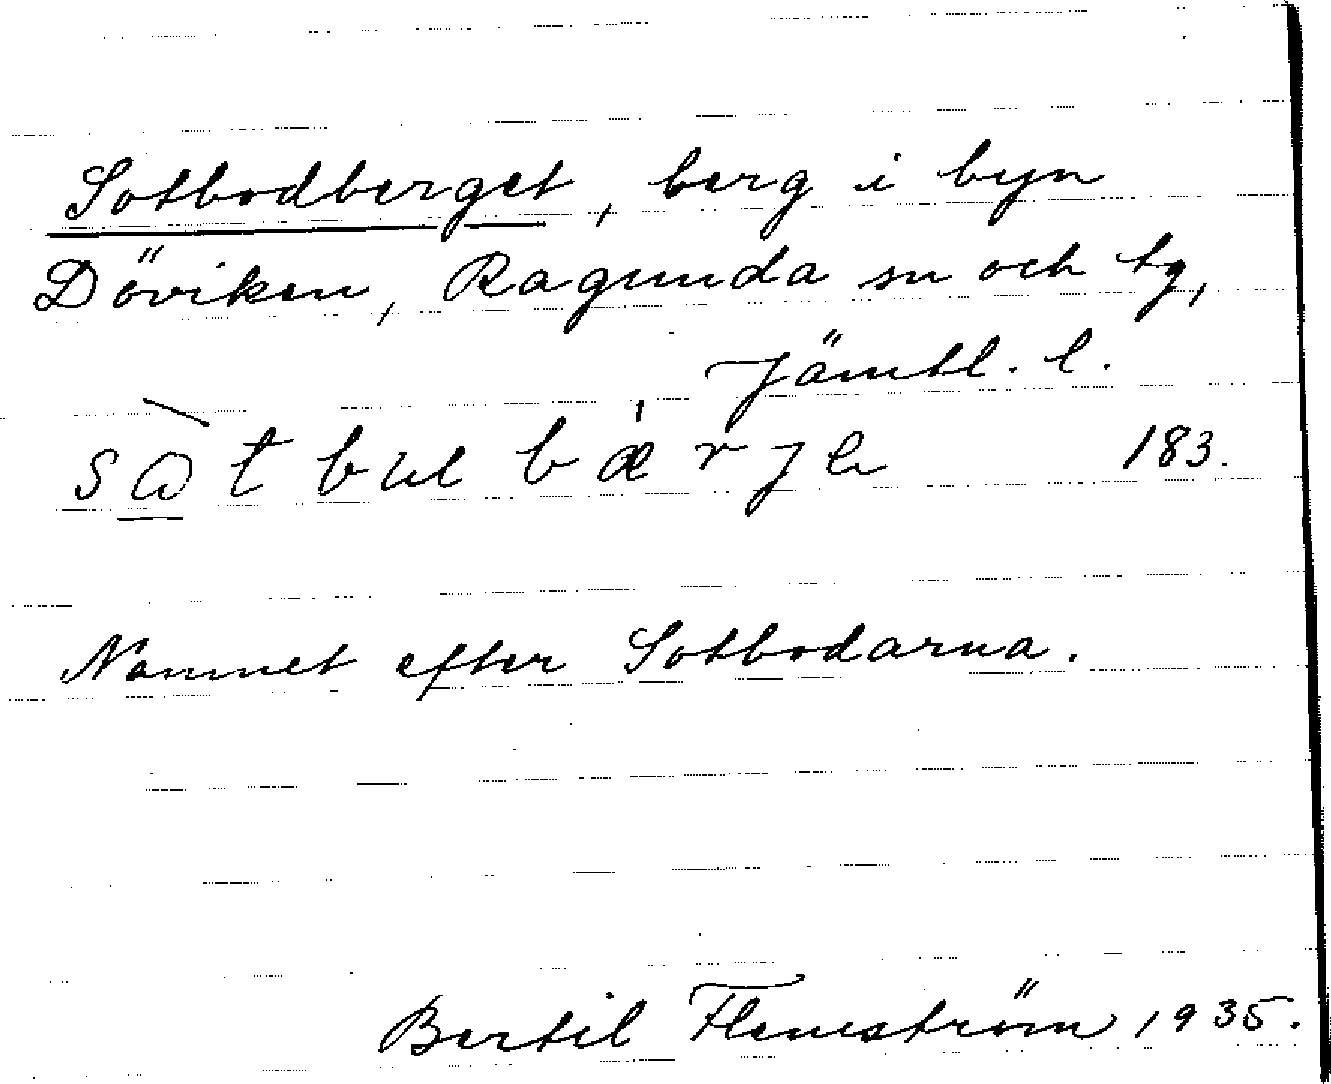 Sotbodberget, berg i byn
Döviken, Ragunda sn och tg,
Jämtl. l.
183.
Namnet efter Sotbodarna.
Bertil Flemström 1935.